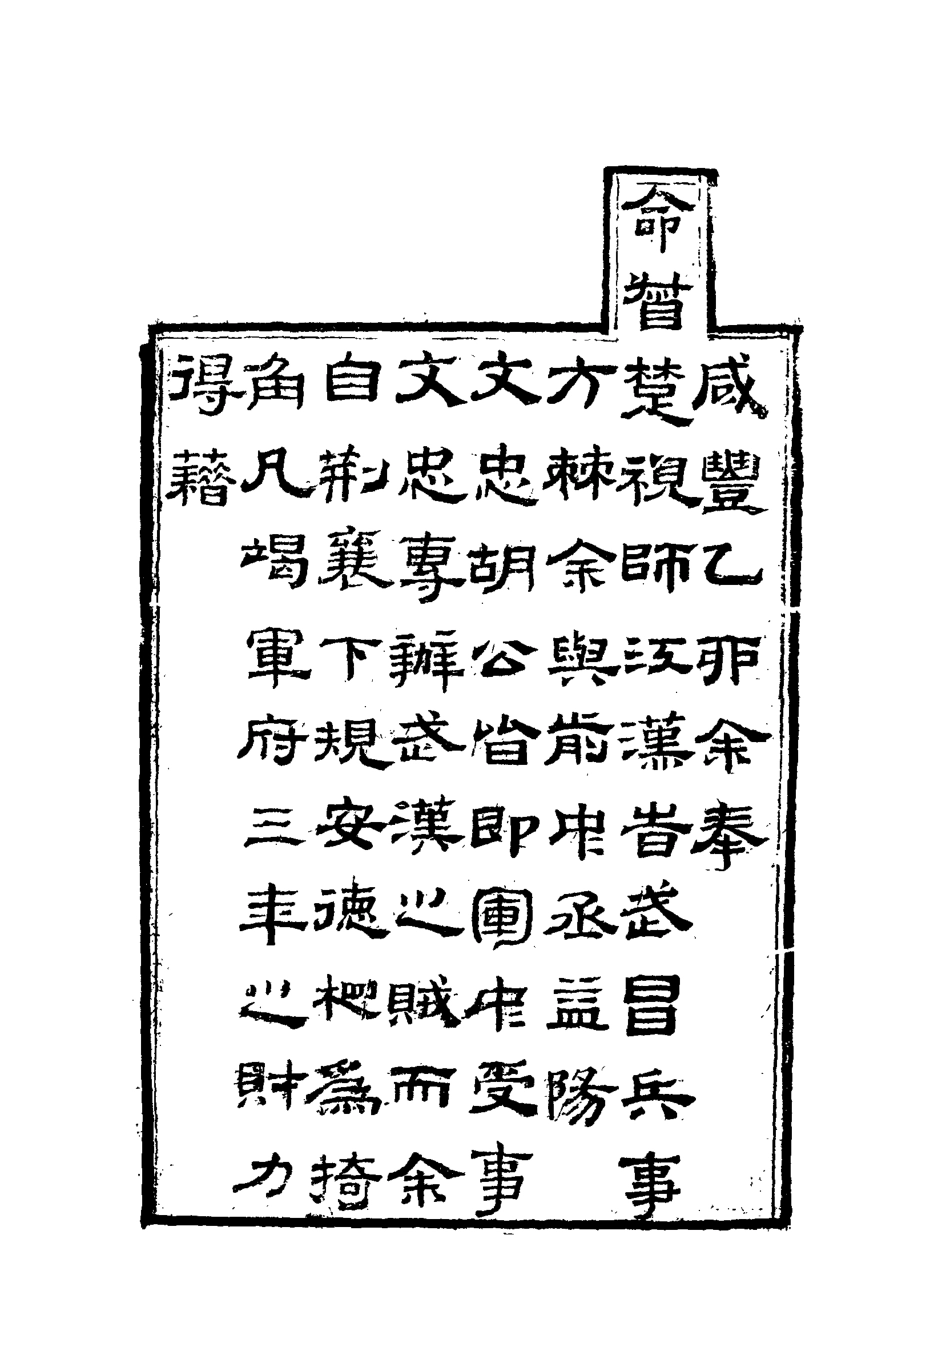 咸豐乙卯余奉
命督楚視師江漢昔武昌兵事
方棘余與前中丞益陽
文忠胡公皆即軍中受事
文忠專辦武漢之賊而余
自荊襄下規安德杷為掎
角凡竭軍府三年之財力
得藉